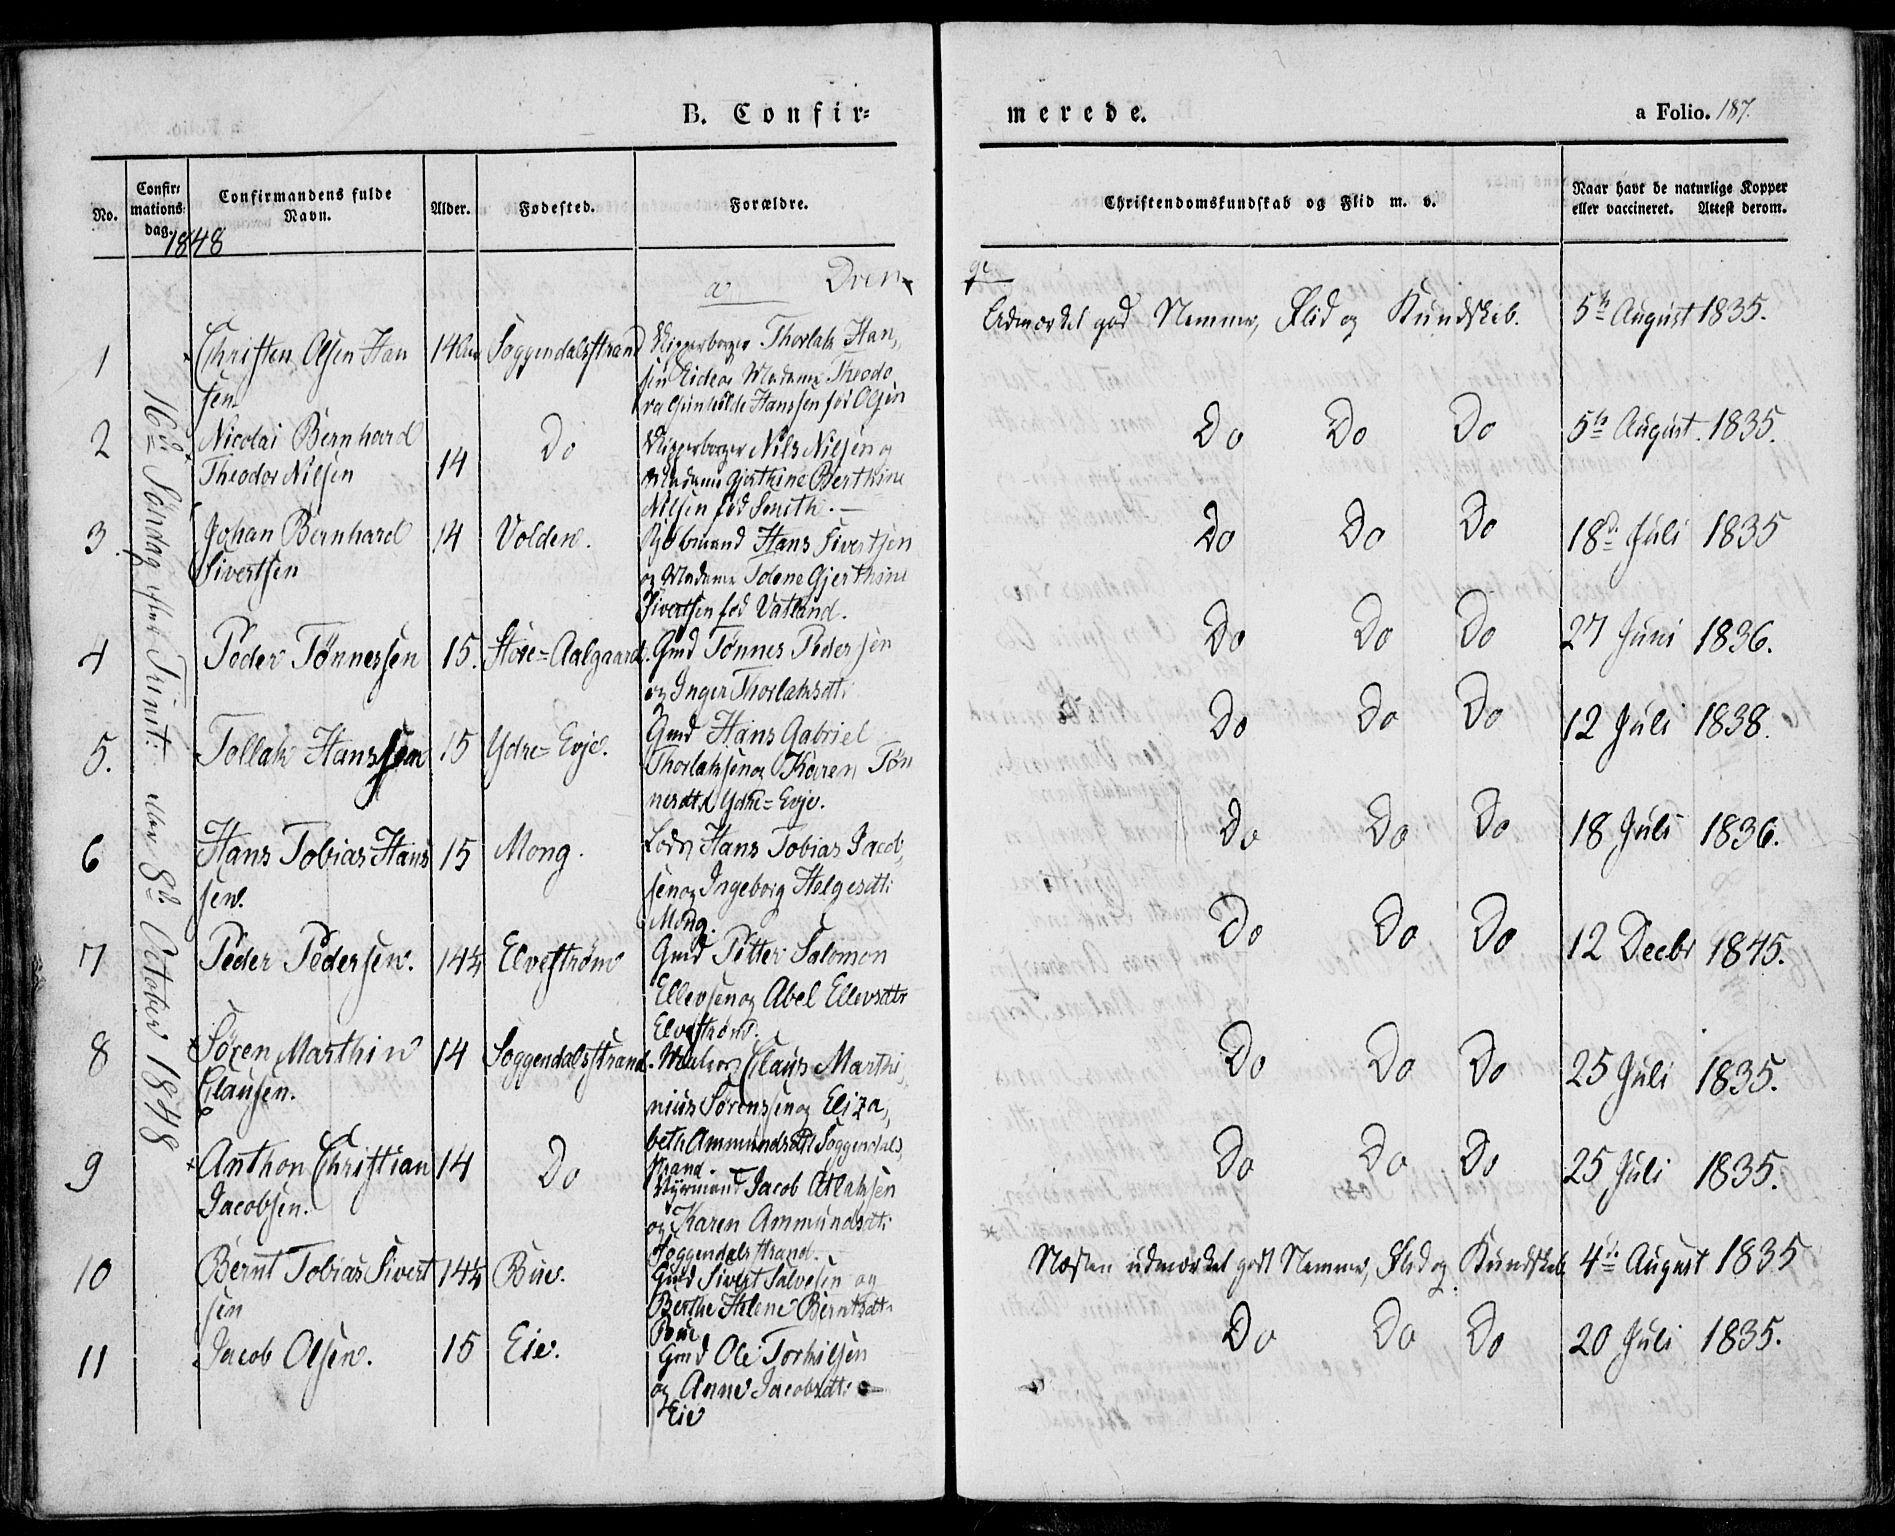 B. Confir=
merede.
a Folio. 187.
No.
Confir=
mations=
dag.
Confirmandens fulde
Navn.
Alder.
Fødested.
Forældre.
Christendomskundskab og Flid m. v.
Naar havt de naturlige Kopper
eller vaccineret. Attest derom.
1848
16de Søndag efter Trinit: 8de October 1848
a Dren
ge
1
Christen Olsen Han
sen
14
Soggendalsstrand
Thorlak Han,
sen Eide og Madame Theodo
ra Gunhilde Hanssen fød Olsen
Udmærket god Nemme, Flid og Kundskab.
5te August 1835.
2
Nicolai Bernhard
Theodor Nilsen
14
Do
Nils Nilsen og
Madame Gjerthine Berthine
Nilsen fød Smith. —
Do Do Do
5te August. 1835.
3.
Johan Bernhard
Sivertsen
14
Volden.
Kjøbmand Hans Sivertsen
og Madame Tolene Gjerthine
Sivertsen fød Vatland.
Do Do Do
18de Juli 1835
4
Peder Tønnessen
15.
Store=Aalgaard.
Gmd Tønnes Pedersen
og Inger Thorlaksdtr
Do Do Do
27 Juni 1836.
5.
Tollak Hanssen
15
Ydre=Evje.
Gmd Hans Gabriel
Thorlaksen og Karen Tøn
nesdtr Ydre=Evje.
Do Do Do
12 Juli 1838.
6
Hans Tobias Hans
sen.
15
Mong.
Lods Hans Tobias Jacob,
sen og Ingeborg Helgesdtr:
Mong.
Do Do Do
18 Juli 1836.
7
Peder Pedersen.
14½
Elvestrøm
Gmd Petter Salomon
Ellevsen og Abel Ellevsdtr
Elvestrøm.
Do Do Do
12 Decbr 1845.
8
Søren Marthin
Clausen.
14
Soggendalsstrand.
Claus Marthi,
nius Sørenssen og Eliza,
beth Ammundsdtr Soggendals,
strand.
Do Do Do
25 Juli 1835.
9
Anthon Christian
Jacobsen.
14
Do
Jacob Atlaksen
og Karen Ammundsdtr:
Soggendalsstrand.
Do Do Do
25 Juli 1835.
10
Bernt Tobias Sivert
sen
14½
Bue.
Gmd Sivert Salvesen og
Berthe Helene Berntsdtr
Bue
Næsten udmærket godt Nemme, Flid og Kundskab
4de August 1835
11
Jacob Olsen.
15
Eie.
Gmd Ole Torkilsen
og Anne Jacobsdtr:
Eie
Do Do Do
20 Juli 1835.